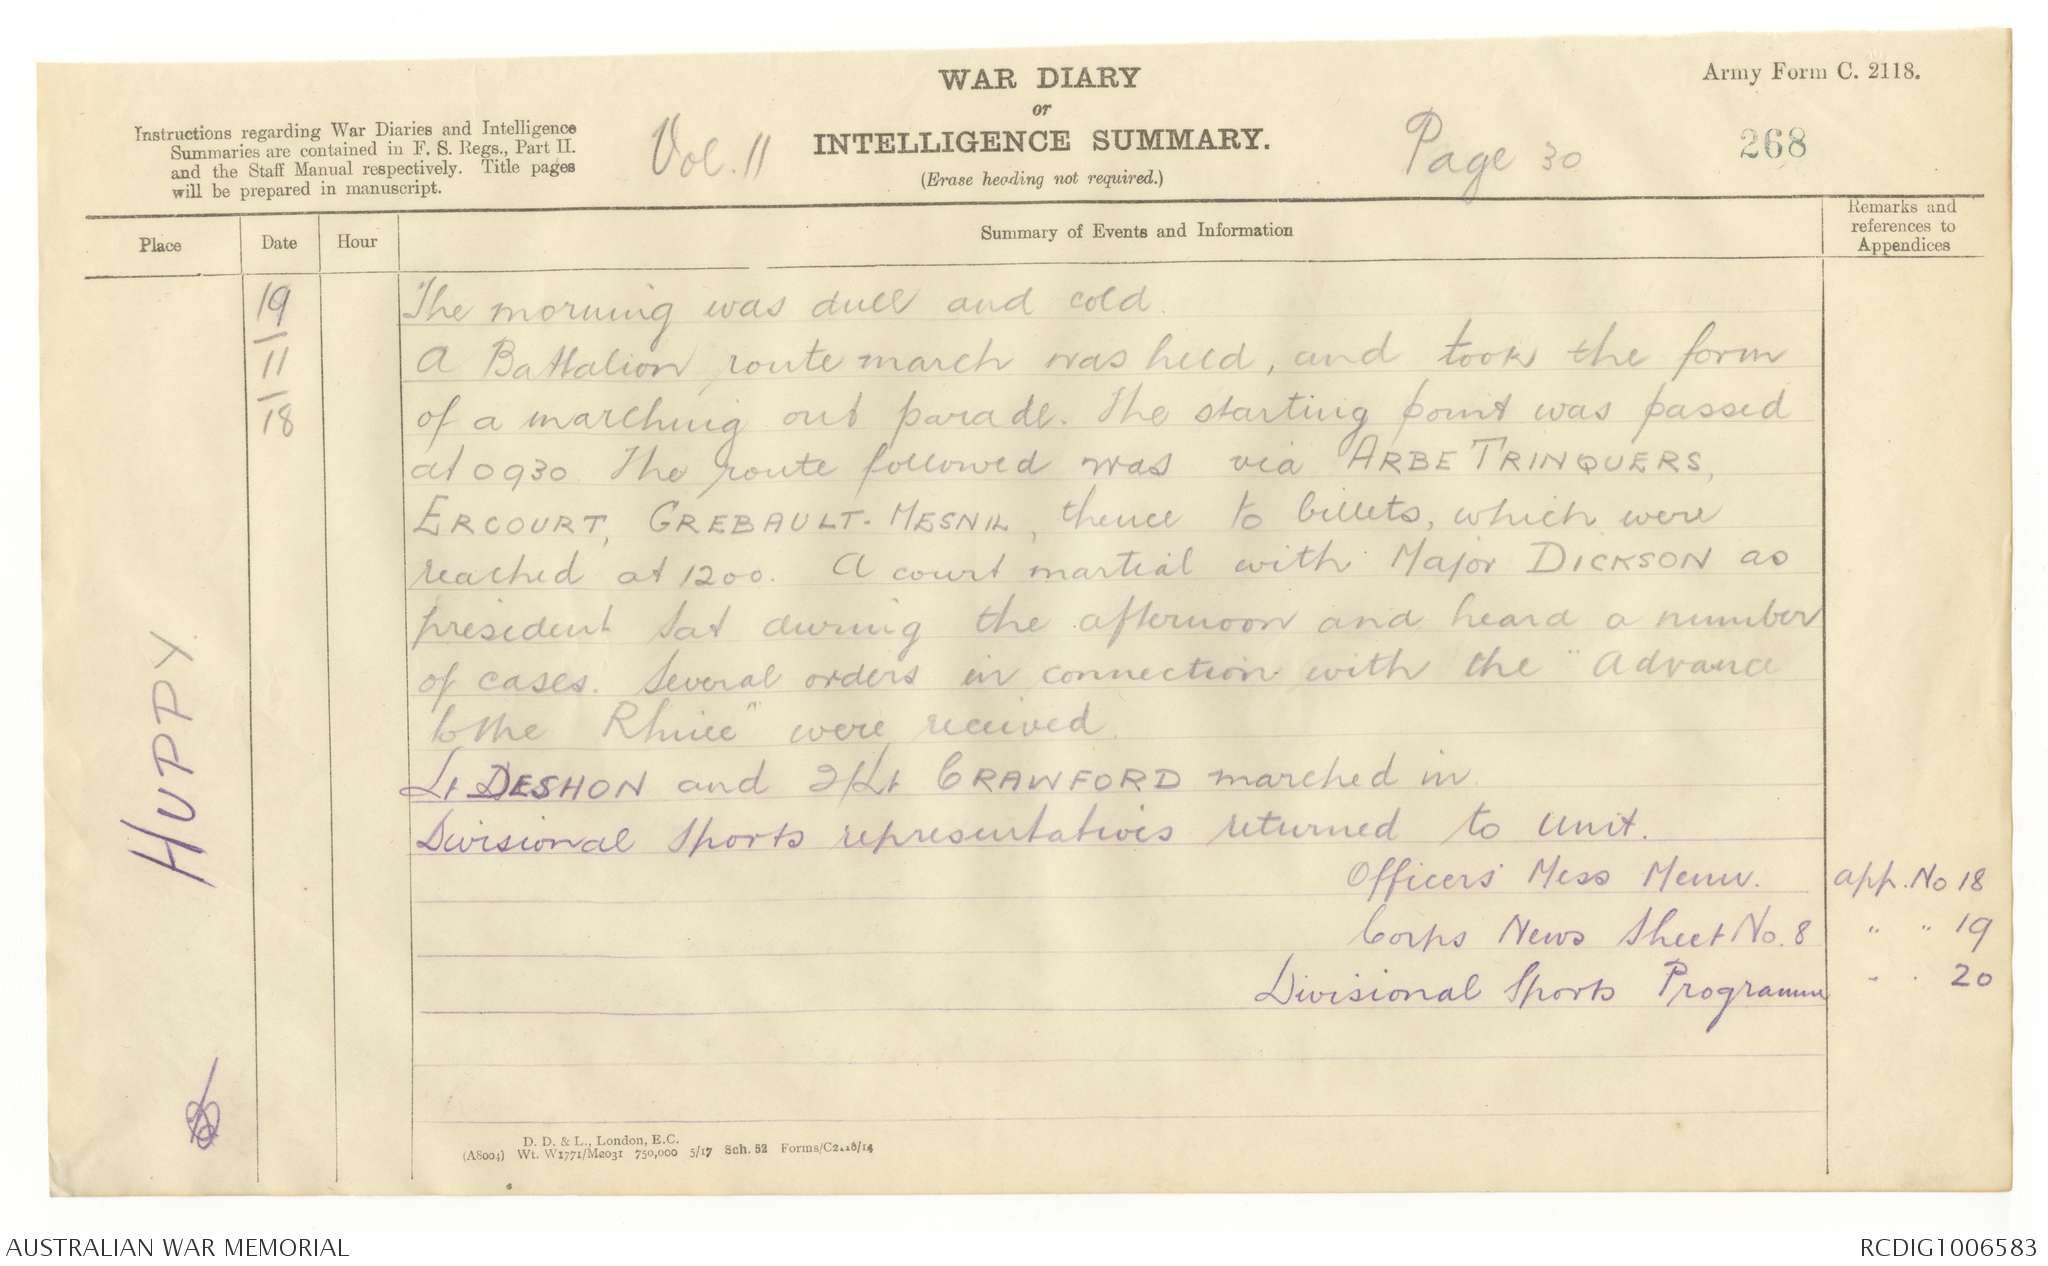 WAR DIARY
or
INTELLIGENCE SUMMARY.
(Erase heading not required.)
Army Form C. 2118.
Instructions regarding War Diaries and Intelligence
Summaries are contained in F. S. Regs., Part II.
and the Staff Manual respectively. Title pages
will be prepared in manuscript.
Vol. 11
Page 30
268
Place
Date
Hour
Summary of Events and Information
Remarks and
references to
Appendices
HUPPY
19
11
18
The morning was dull and cold.
A Battalion route march was held, and took the form
of a marching out parade. The starting point was passed
at 0930. The route followed was via ARBE TRINQUERS,
ERCOURT, GREBAULT-MESNIL, thence to billets, which were
reached at 1200. A court martial with Major DICKSON as
president sat during the afternoon and heard a number
of cases. Several orders in connection with the "Advance
to the Rhine" were received.
Lt DESHON and 2/Lt CRAWFORD marched in.
Divisional Sports representatives returned to unit.
Officers' Mess Menu. app. No 18
Corps News Sheet No. 8 " " 19
Divisional Sports Programme " " 20
D. D. & L., London, E.C.
(A8004) Wt. W1771/M2031 750,000 5/17 Sch. 52 Forms/C2118/14
AUSTRALIAN WAR MEMORIAL
RCDIG1006583